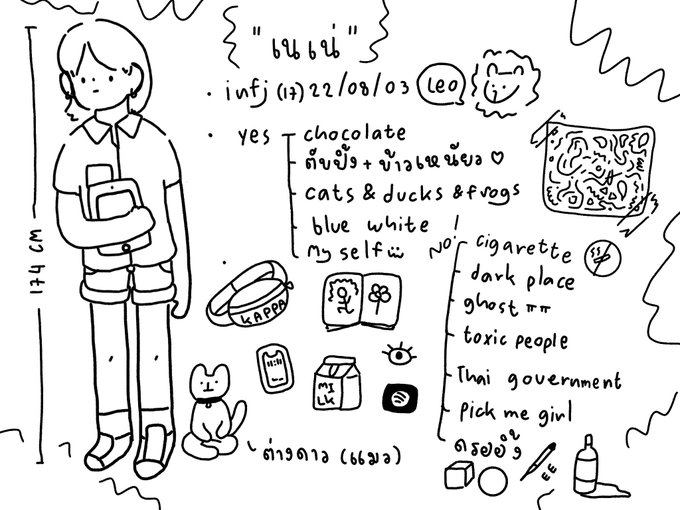 "เนเน่"
infj (17) 22/08/03 Leo
yes
chocolate
ตับปิ้ง + ข้าวเหนียว ♡
cats & ducks & frogs
blue white
My self
174 CM
NO!
cigarette
dark place
ghost ㅠㅠ
toxic people
Thai government
pick me girl
KAPPA
11:11
MILK
ต่างดาว (แมว)
EE